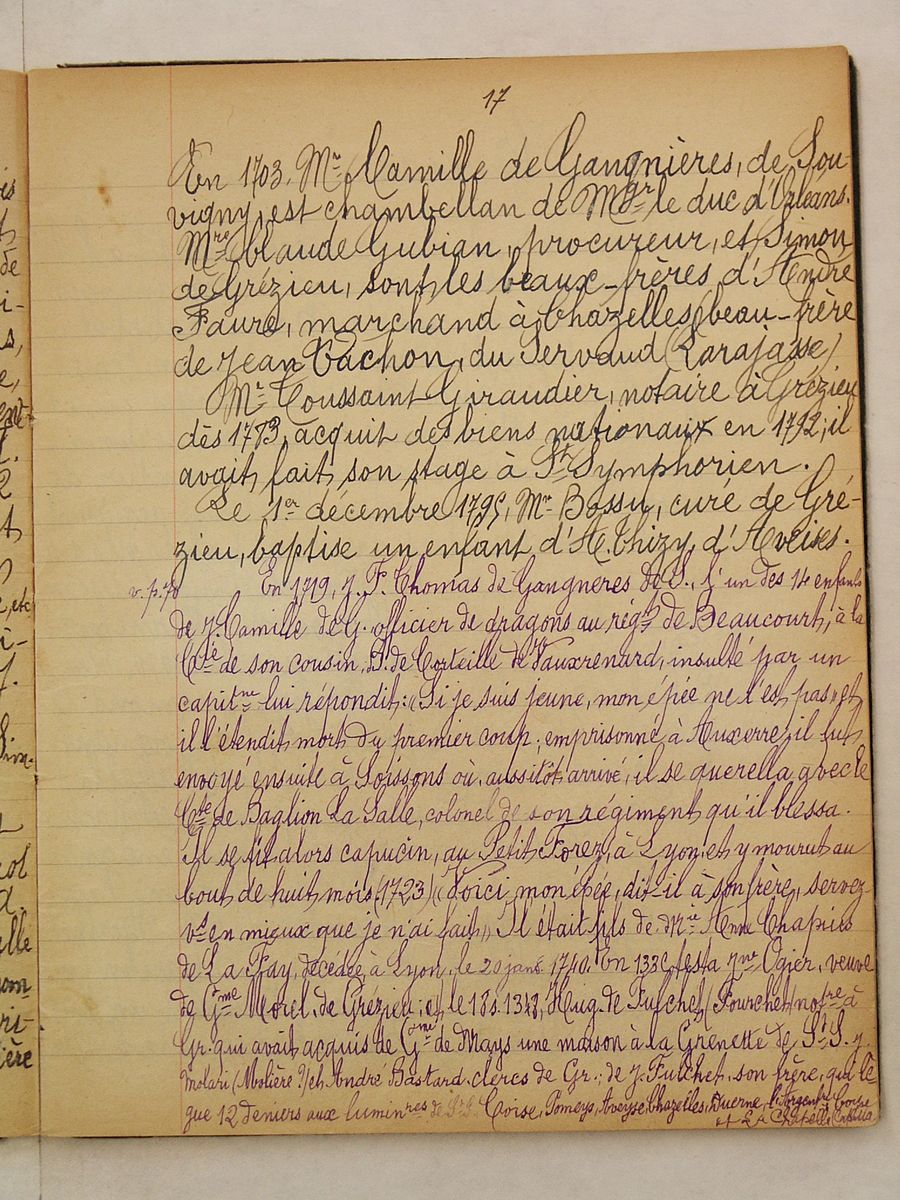 17
En 1703. Mr Camille de Gangnières, de Sou-
vigny, est chambellan de Mgr le duc d'Orléans.
Mre Claude Gubian, procureur, et Simon
de Grézieu, sont les beaux-frères d'André
Faure, marchand à Chazelles (beau-frère
de Jean Vachon, du Servaud (Larajasse)
Mr Toussaint Giraudier, notaire à Grézieu
dès 1783, acquit des biens nationaux en 1792; il
avait fait son stage à St Symphorien.
Le 1er décembre 1795, Mr Bossu, curé de Gré-
zieu, baptise un enfant d'A. Thizy, d'Aveises.
v. p. 70 En 1719, J. F. Thomas de Gangneres de S., l'un des 14 enfants
de J. Camille de G. officier de dragons au régt de Beaucourt, à la
Cie de son cousin, B. de Corteille de Vauxrenard, insulté par un
capitne lui répondit: « Si je suis jeune, mon épée ne l'est pas » et
il l'étendit mort du premier coup; emprisonné à Auxerre, il fut
envoyé ensuite à Soissons où, aussitôt arrivé, il se querella avec le
Cte de Baglion La Salle, colonel de son régiment qu'il blessa.
Il se fit alors capucin, au Petit Forez, à Lyon, et y mourut au
bout de huit mois (1723) « Voici mon épée, dit-il à son frère, servez-
vs en mieux que je n'ai fait » Il était fils de Anne Chapuis
de La Fay, décédée à Lyon, le 20 janv. 1740. En testa Ogier, veuve
de Gme Morel, de Grézieu, et, le Hug. de Fulchet (Fourchet) notre à
Gr. qui avait acquis de Gme de Mays une maison à la Grenette de St S. J.
Molari (Molière?) et André Bastard clercs de Gr.; de J. Fulchet, son frère, qui lè-
gue 12 deniers aux luminres de St S. Coise, Pomeys, Aveyse, Chazelles, Duerne, l'Argentre
et La Chapelle